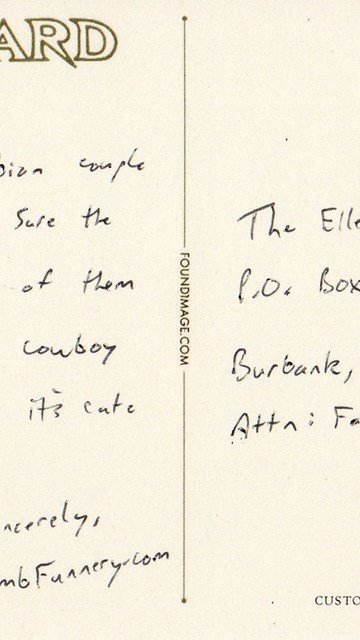 ARD
bian couple
Sure the
of them
cowboy
it's cute
ncerely,
mbFunnery.com
FOUNDIMAGE.COM
The Elle
P.O. Box
Burbank,
Attn: Fa
CUSTO